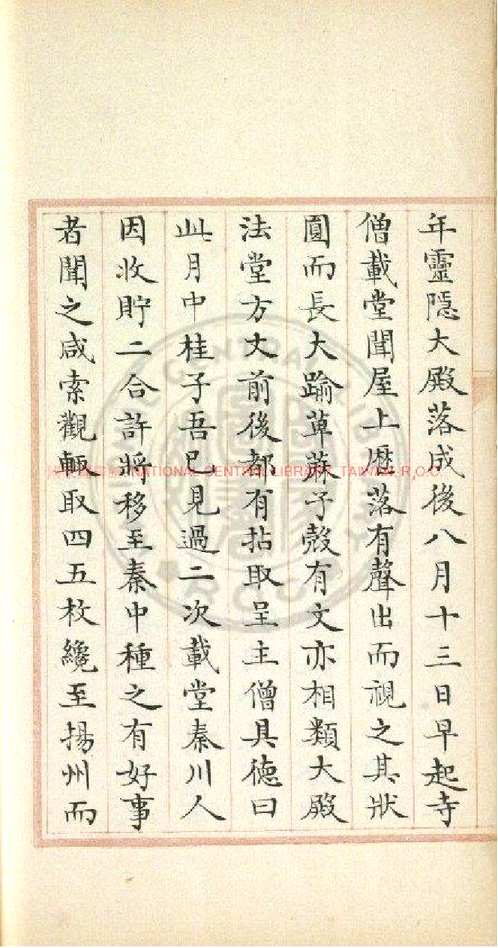 年靈隱大殿落成後八月十三日早起寺
僧載堂聞屋上歴落有聲出而視之其狀
圓而長大踰萆蔴子殻有文亦相類大殿
法堂方丈前後都有拈取呈主僧具德曰
此月中桂子吾已見過二次載堂秦川人
因收貯二合許將移至秦中種之有好事
者聞之咸索觀輙取四五枚纔至揚州而
NATIONAL CENTRAL LIBRARY, TAIWAN, R.O.C